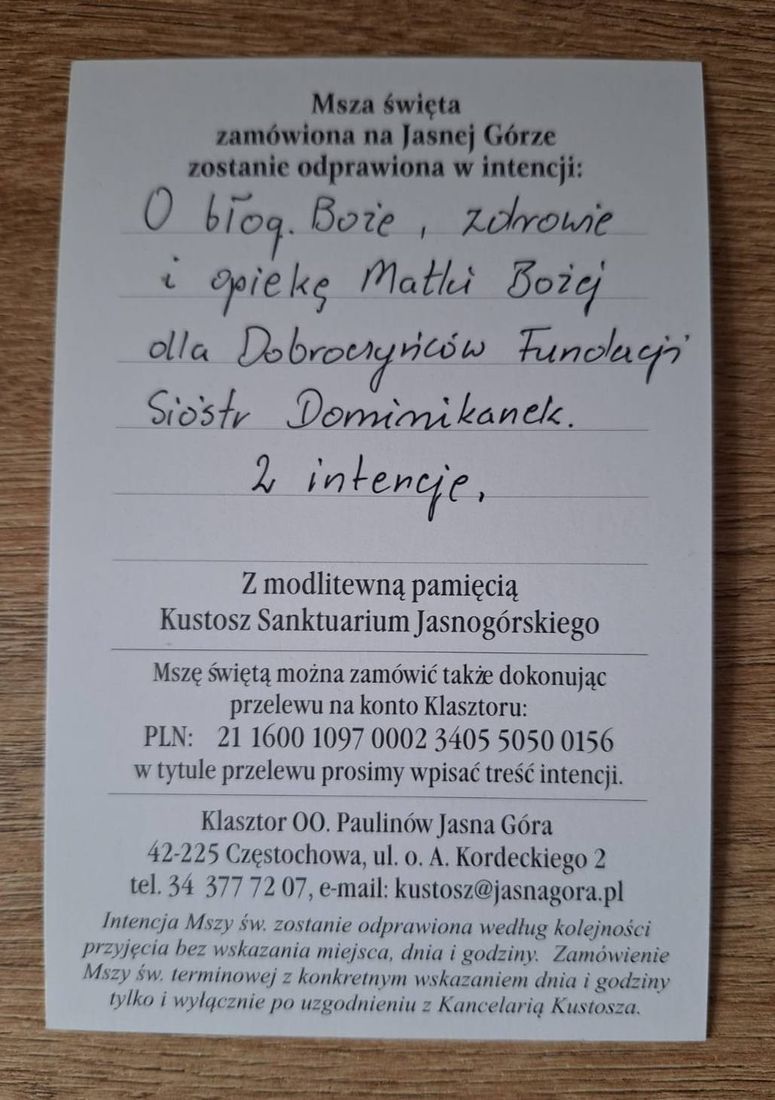 Msza święta
zamówiona na Jasnej Górze
zostanie odprawiona w intencji:
O błog. Boże, zdrowie
i opiekę Matki Bożej
dla Dobroczyńców Fundacji
Sióstr Dominikanek.
2 intencje.
Z modlitewną pamięcią
Kustosz Sanktuarium Jasnogórskiego
Mszę świętą można zamówić także dokonując
przelewu na konto Klasztoru:
PLN: 21 1600 1097 0002 3405 5050 0156
w tytule przelewu prosimy wpisać treść intencji.
Klasztor OO. Paulinów Jasna Góra
42-225 Częstochowa, ul. o. A. Kordeckiego 2
tel. 34 377 72 07, e-mail: kustosz@jasnagora.pl
Intencja Mszy św. zostanie odprawiona według kolejności
przyjęcia bez wskazania miejsca, dnia i godziny. Zamówienie
Mszy św. terminowej z konkretnym wskazaniem dnia i godziny
tylko i wyłącznie po uzgodnieniu z Kancelarią Kustosza.